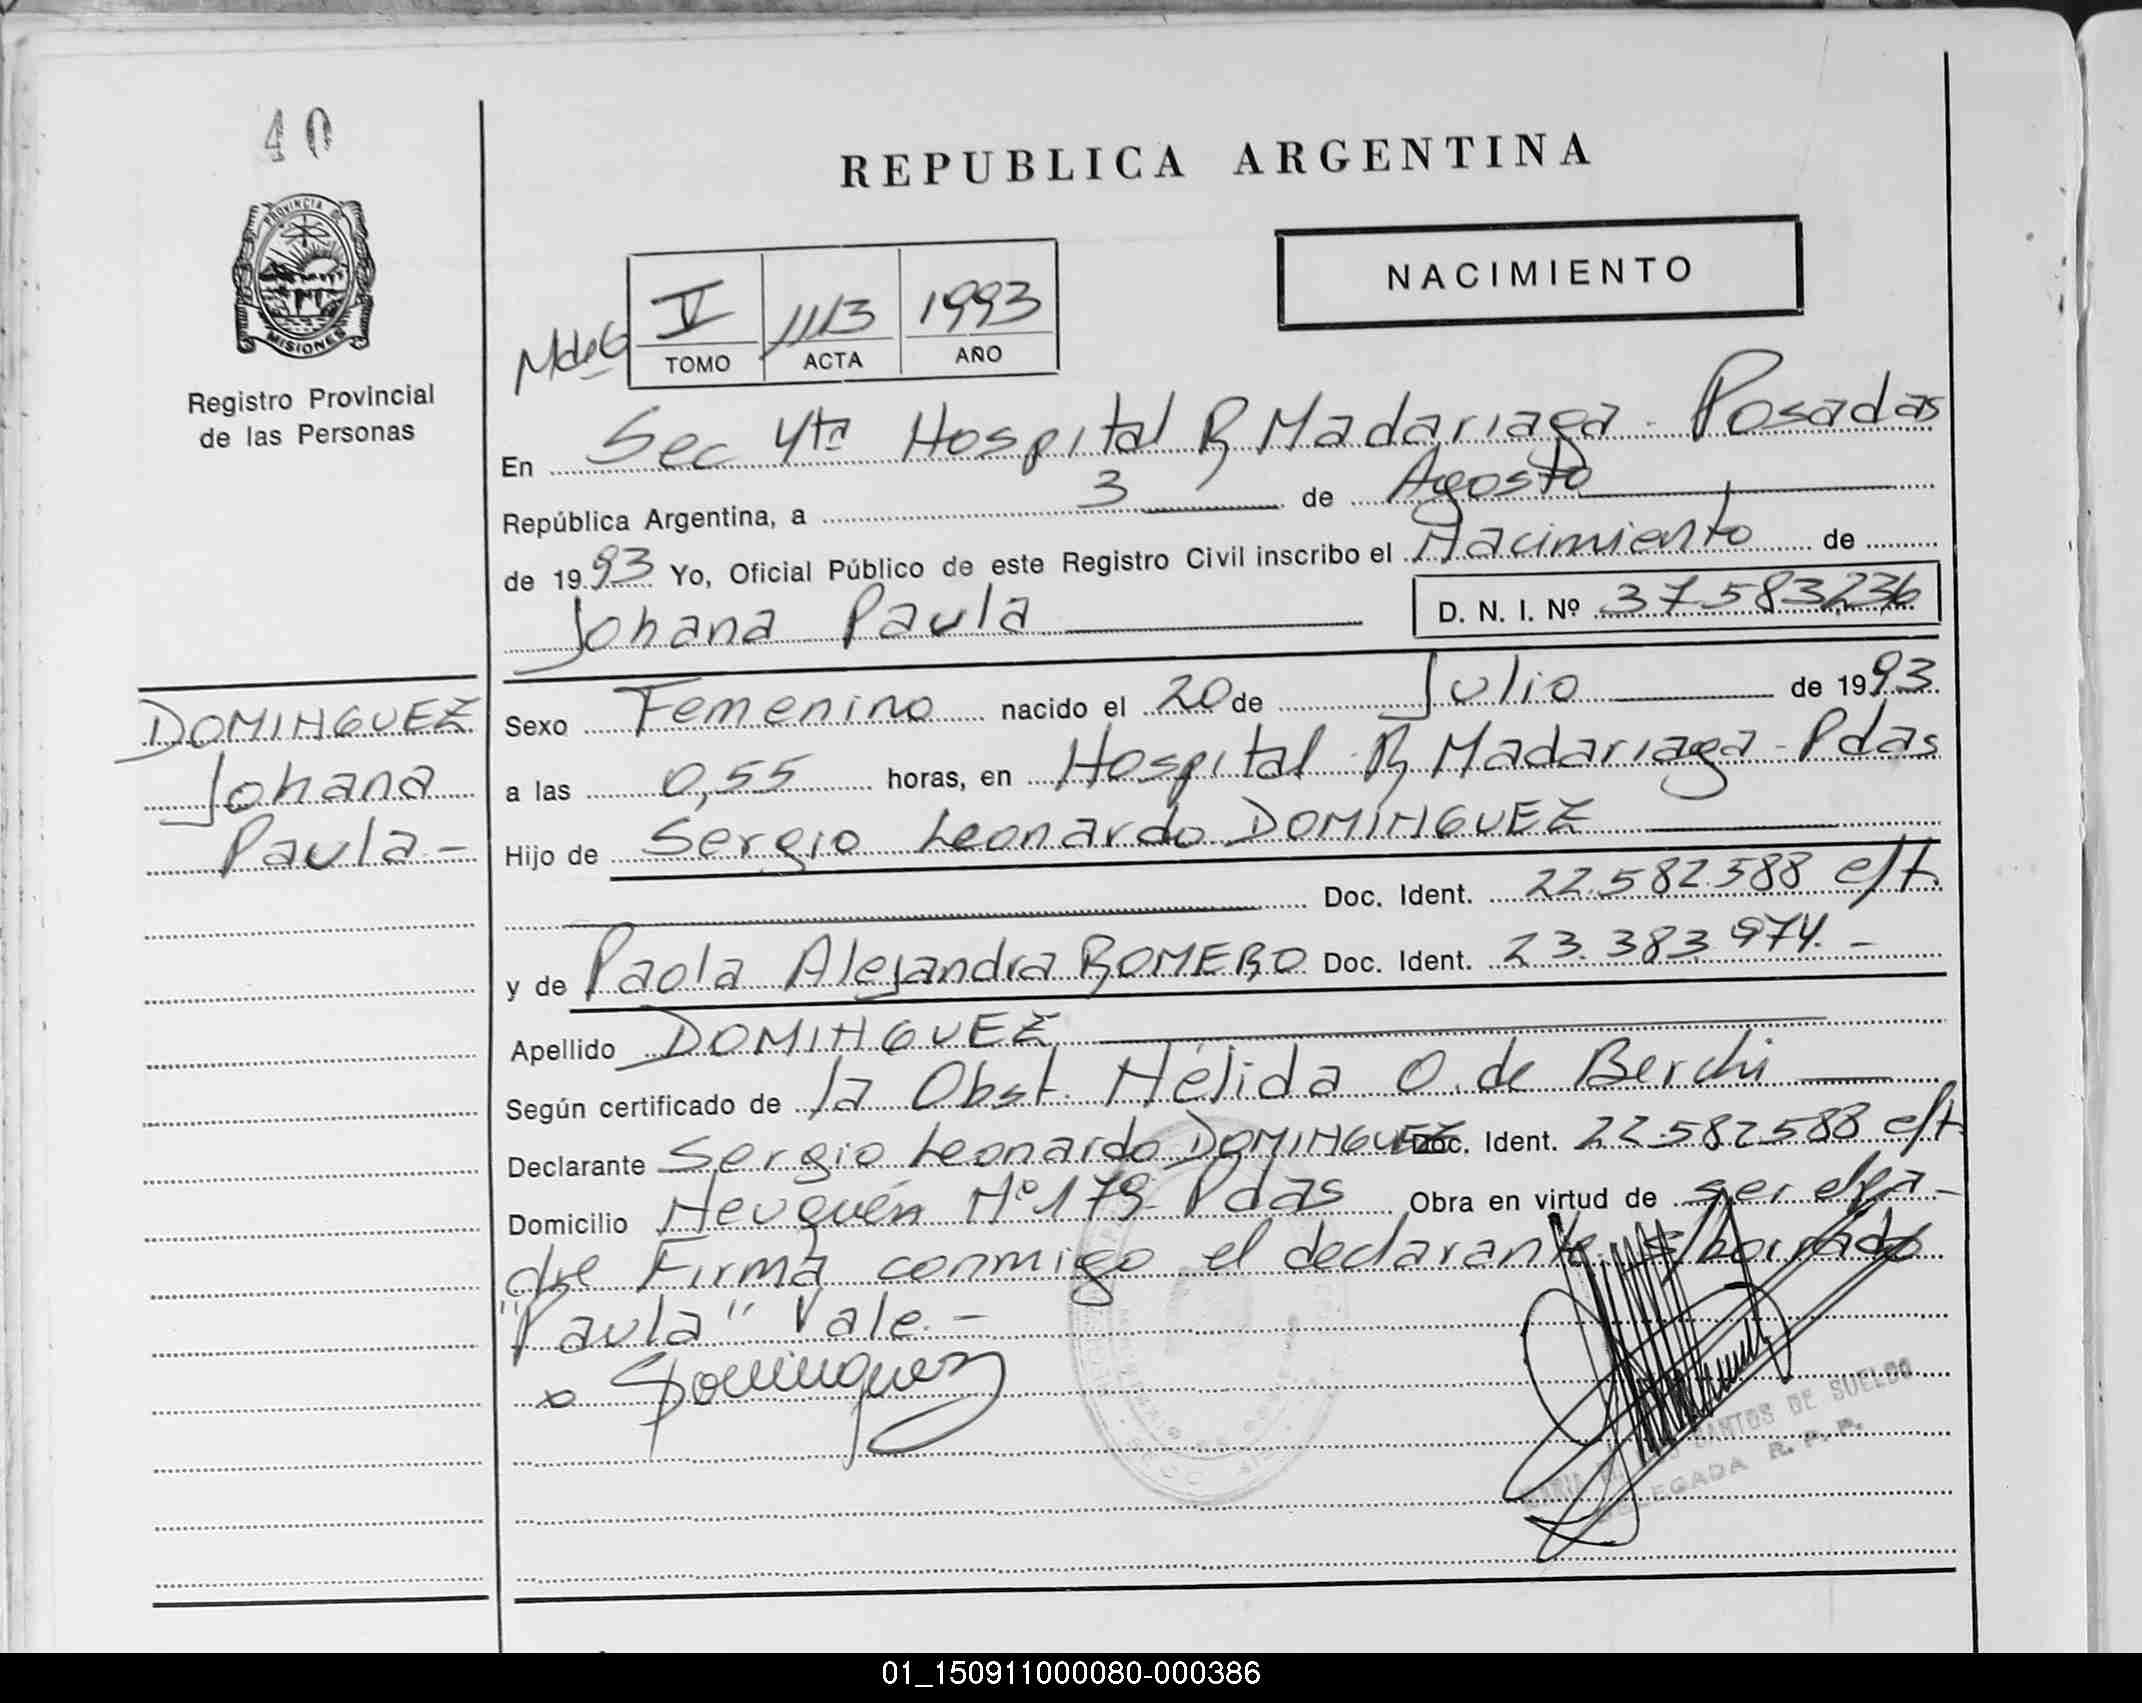 40
REPUBLICA ARGENTINA
PROVINCIA DE
MISIONES
Registro Provincial
de las Personas
NACIMIENTO
V 1113 1993
TOMO ACTA AÑO
En Sec 4ta Hospital R Madariaga - Posadas
República Argentina, a 3 de Agosto
de 1993 Yo, Oficial Público de este Registro Civil inscribo el Nacimiento de
Johana Paula D. N. I. Nº 37.583.236
DOMINGUEZ
Johana
Paula.-
Sexo Femenino nacido el 20 de Julio de 1993
a las 0,55 horas, en Hospital R Madariaga - Pdas
Hijo de Sergio Leonardo DOMINGUEZ
Doc. Ident. 22.582.588 e/t.
y de Paola Alejandra ROMERO Doc. Ident. 23.383.974.-
Apellido DOMINGUEZ
Según certificado de la Obst. Nélida O. de Berchi
Declarante Sergio Leonardo DOMINGUEZ Doc. Ident. 22.582588 e/t.
Domicilio Neuquén Nº 179 - Pdas Obra en virtud de ser el pa-
dre Firma conmigo el declarante. s/borrado
"Paula" Vale.-
x SDominguez
SANTOS DE SUELDO
DELEGADA R. P. P.
01_150911000080-000386